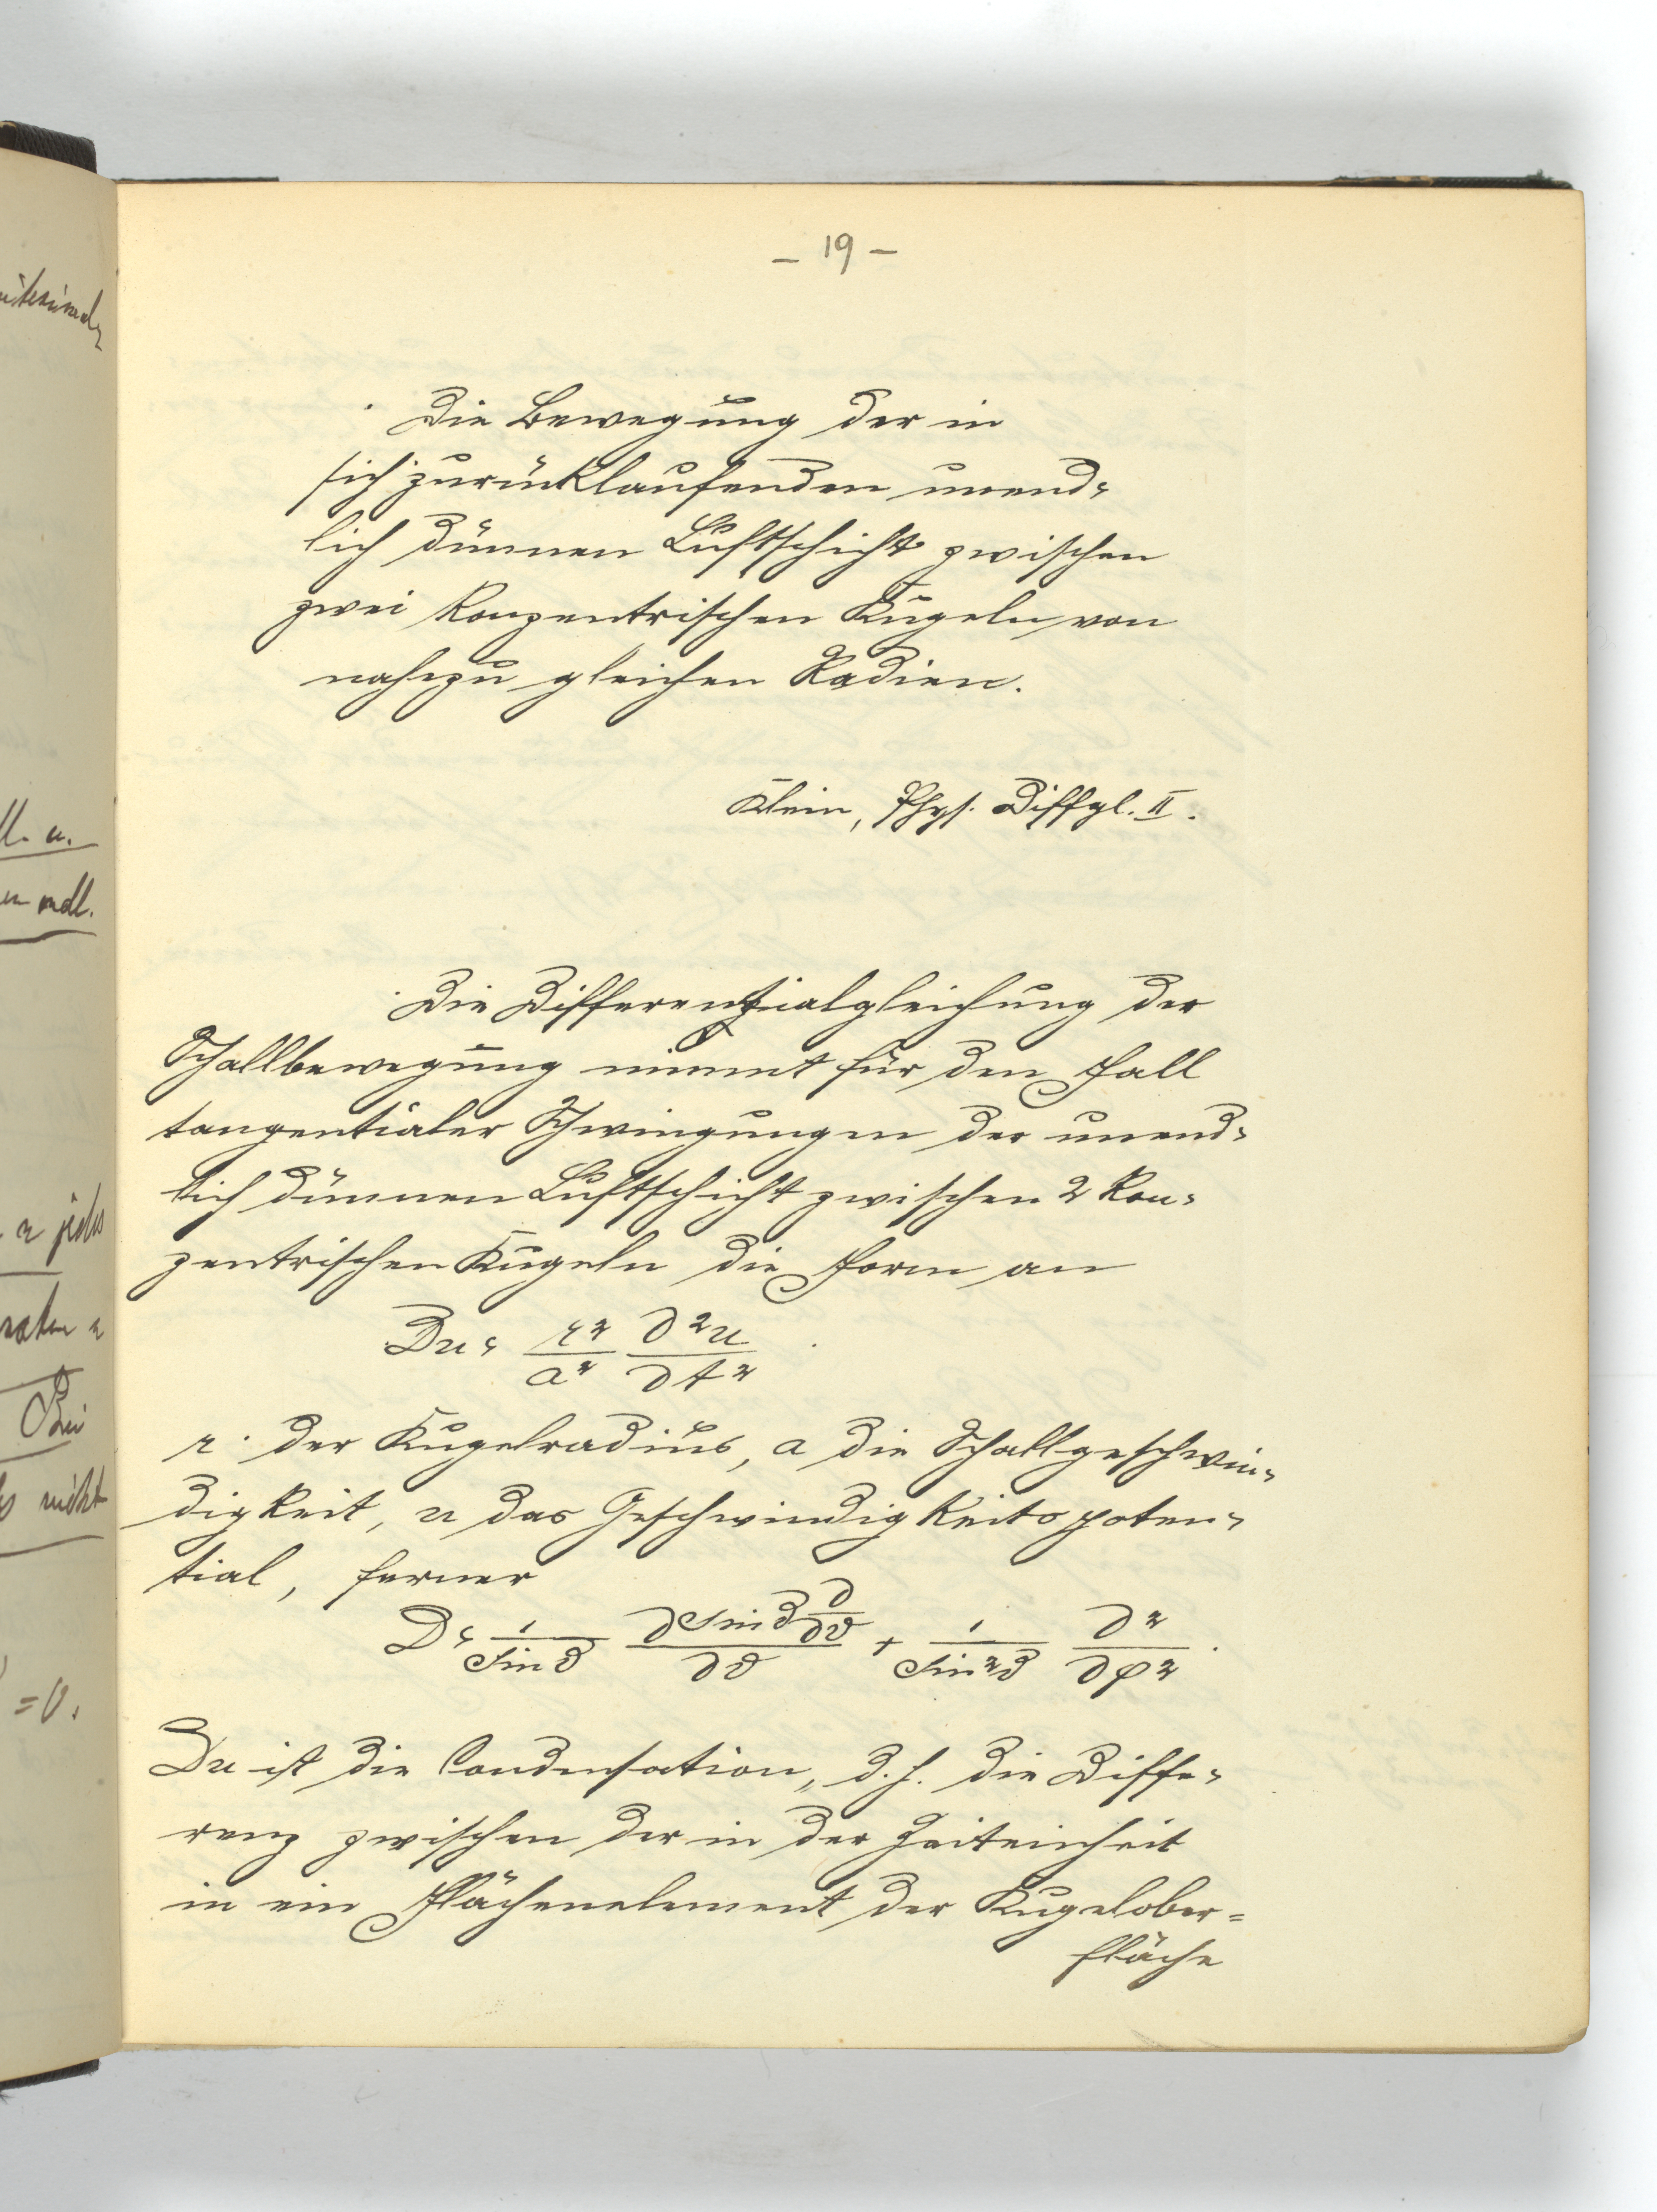 – 19 –
Die Bewegung der in
sich zurücklaufenden unend-
lich dünnen Luftschicht zwischen
zwei konzentrischen Kugeln von
nahezu gleichen Radien.
Klein, Phys. Diffgl. II.
Die Differenzialgleichung der
Schallbewegung nimmt für den Fall
tangentialer Schwingungen der unend-
lich dünnen Luftschicht zwischen 2 kon-
zentrischen Kugeln die Form an
Du = r²/a² ∂²u/∂t²
r der Kugelradius, a die Schallgeschwin-
digkeit, u das Geschwindigkeitspoten-
tial, ferner
D = 1/sin ϑ ∂ sin ϑ ∂/∂ϑ / ∂ϑ + 1/sin²ϑ ∂²/∂φ².
Du ist die Condensation, d. h. die Diffe-
renz zwischen der in der Zeiteinheit
in ein Flächenelement der Kugelober=
fläche
ll. u.
mdl.
r jedes
Bei
nicht
= 0.